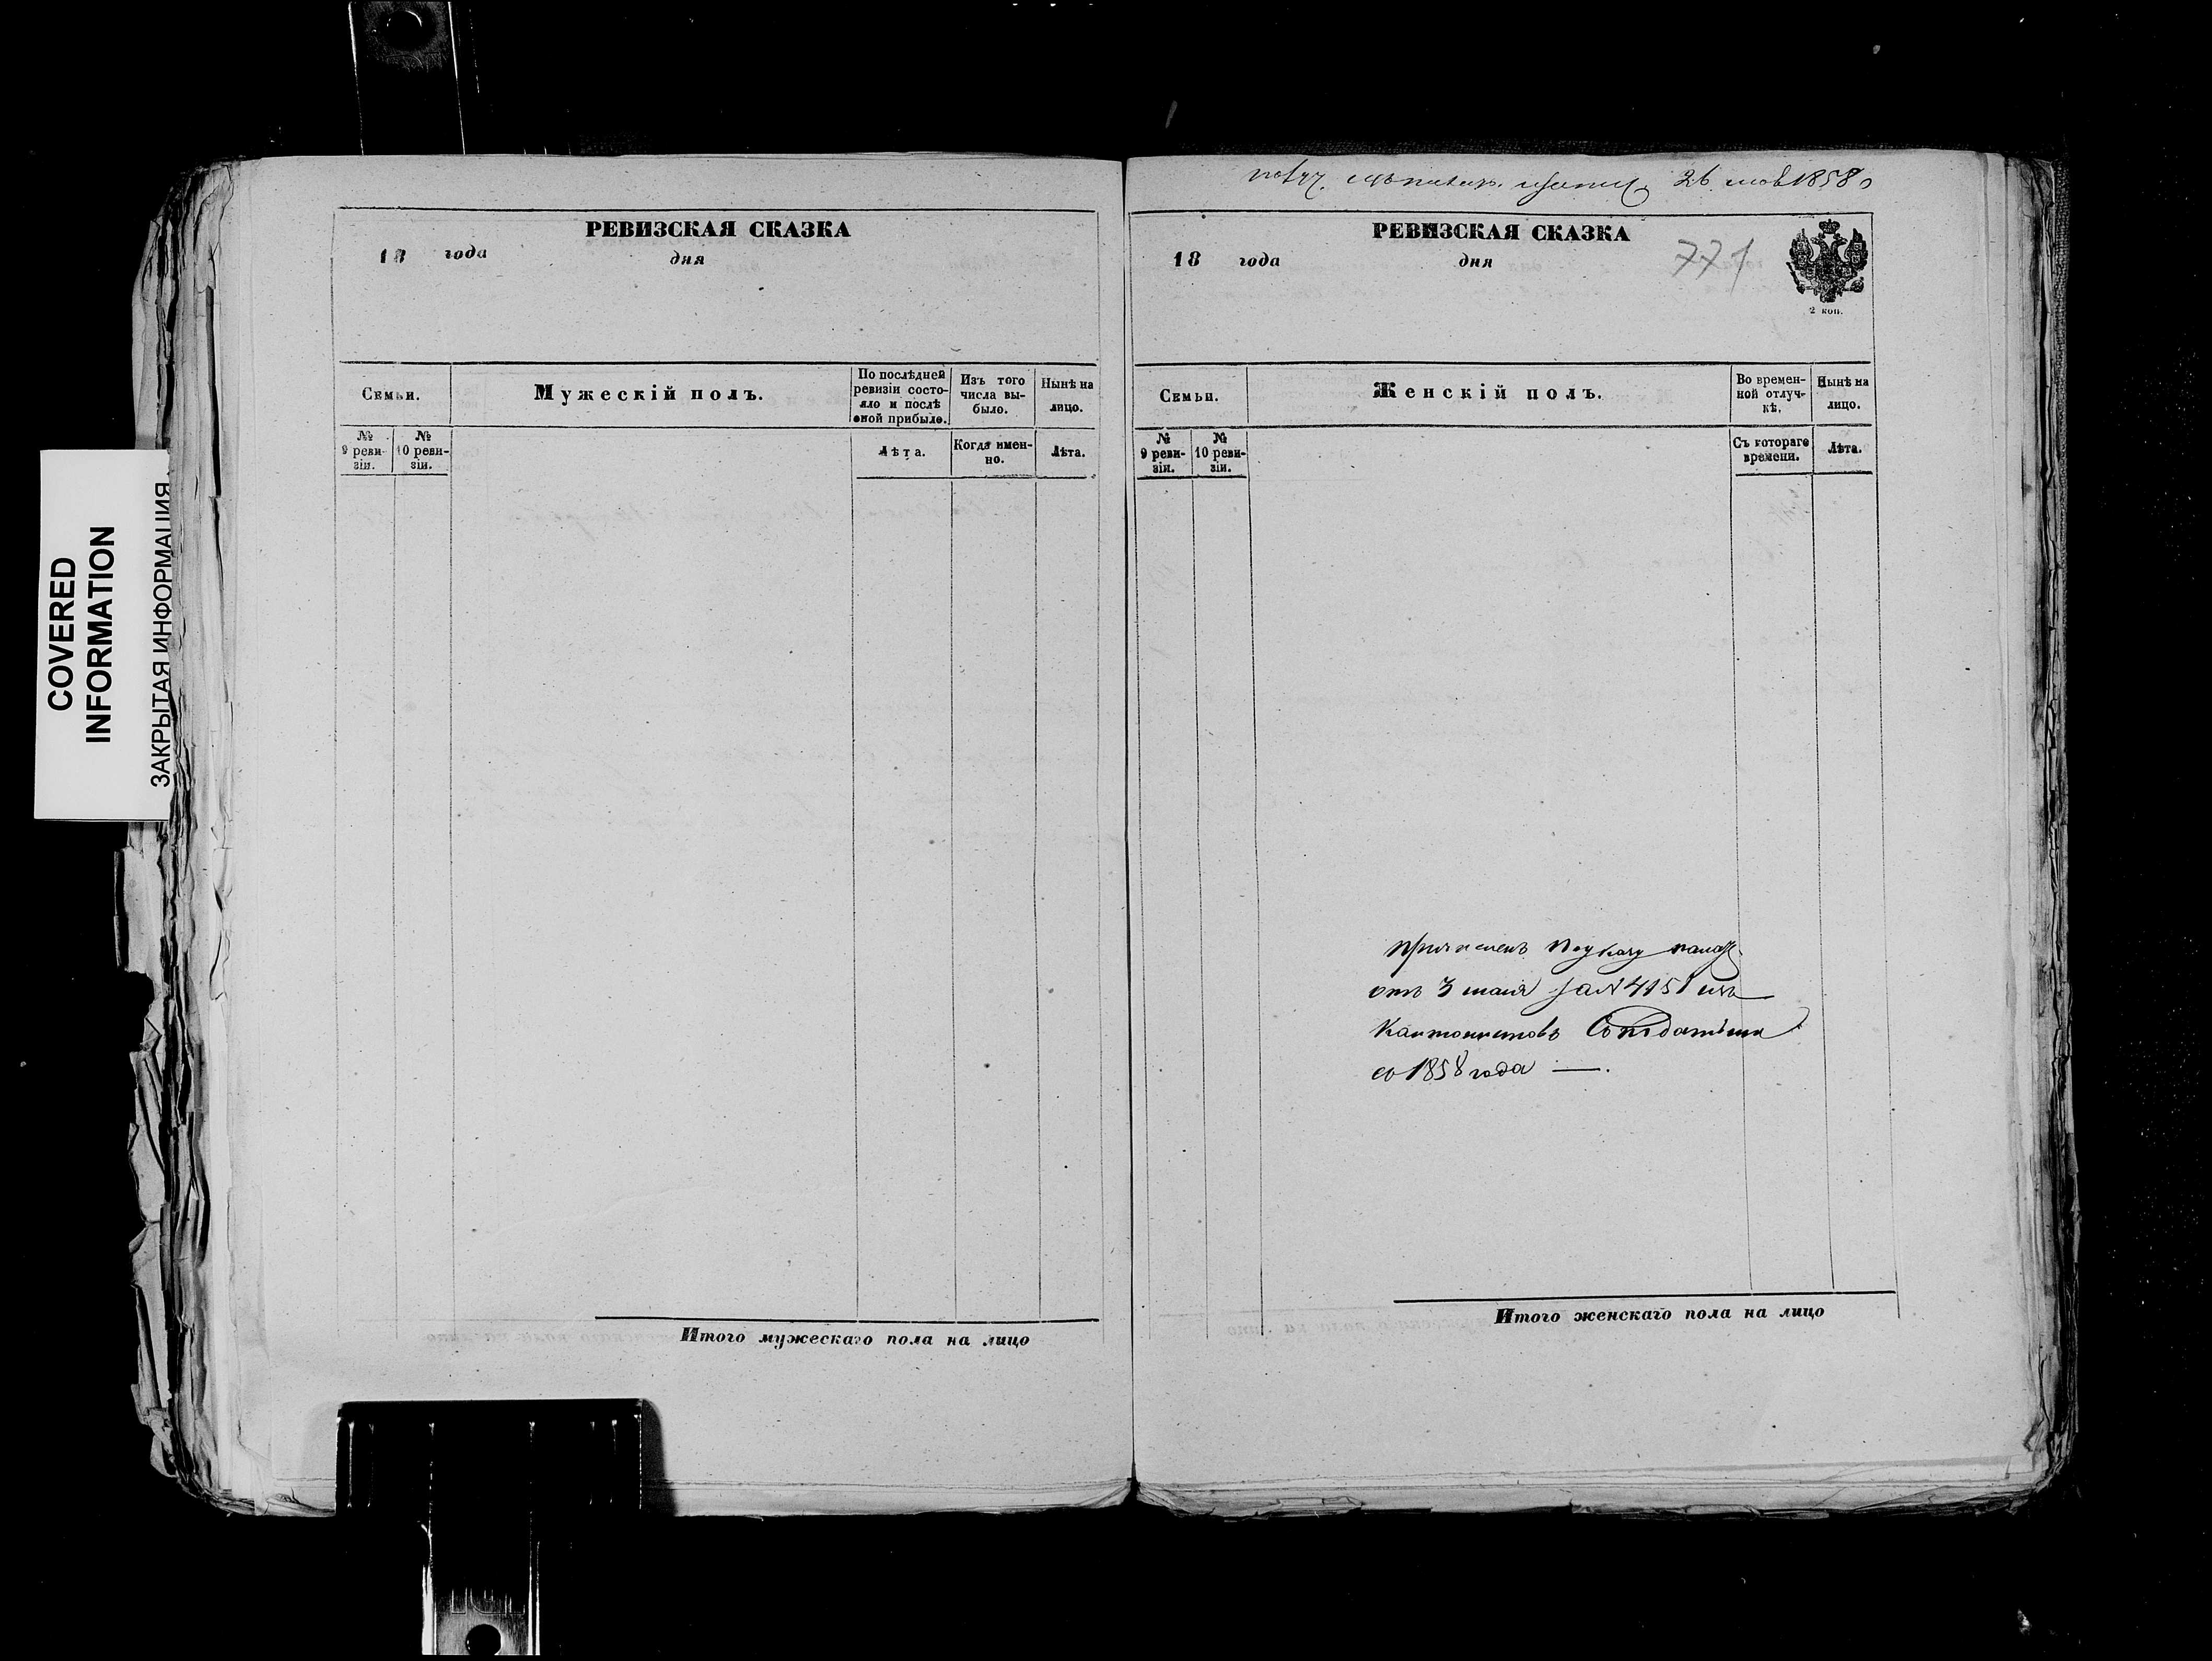 COVERED
INFORMATION
ЗАКРЫТАЯ ИНФОРМАЦИЯ
РЕВИЗСКАЯ СКАЗКА
18 года дня
Семьи.
Мужескій полъ.
По послѣдней
ревизіи состо-
яло и послѣ
оной прибыло.
Изъ того
числа вы-
было.
Нынѣ на
лицо.
№
9 реви-
зіи.
№
10 реви-
зіи.
Лѣта.
Когда имен-
но.
Лѣта.
Итого мужескаго пола на лицо
26 1858
РЕВИЗСКАЯ СКАЗКА
18 года дня
771
2 коп.
Семьи.
Женскій полъ.
Во времен-
ной отлуч-
кѣ.
Нынѣ на
лицо.
№
9 реви-
зіи.
№
10 реви-
зіи.
Съ котораго
времени.
Лѣта.
причисленъ по указу палаты
отъ 3 маія за № 4151 изъ
Кантонистовъ
съ 1858 года —.
Итого женскаго пола на лицо